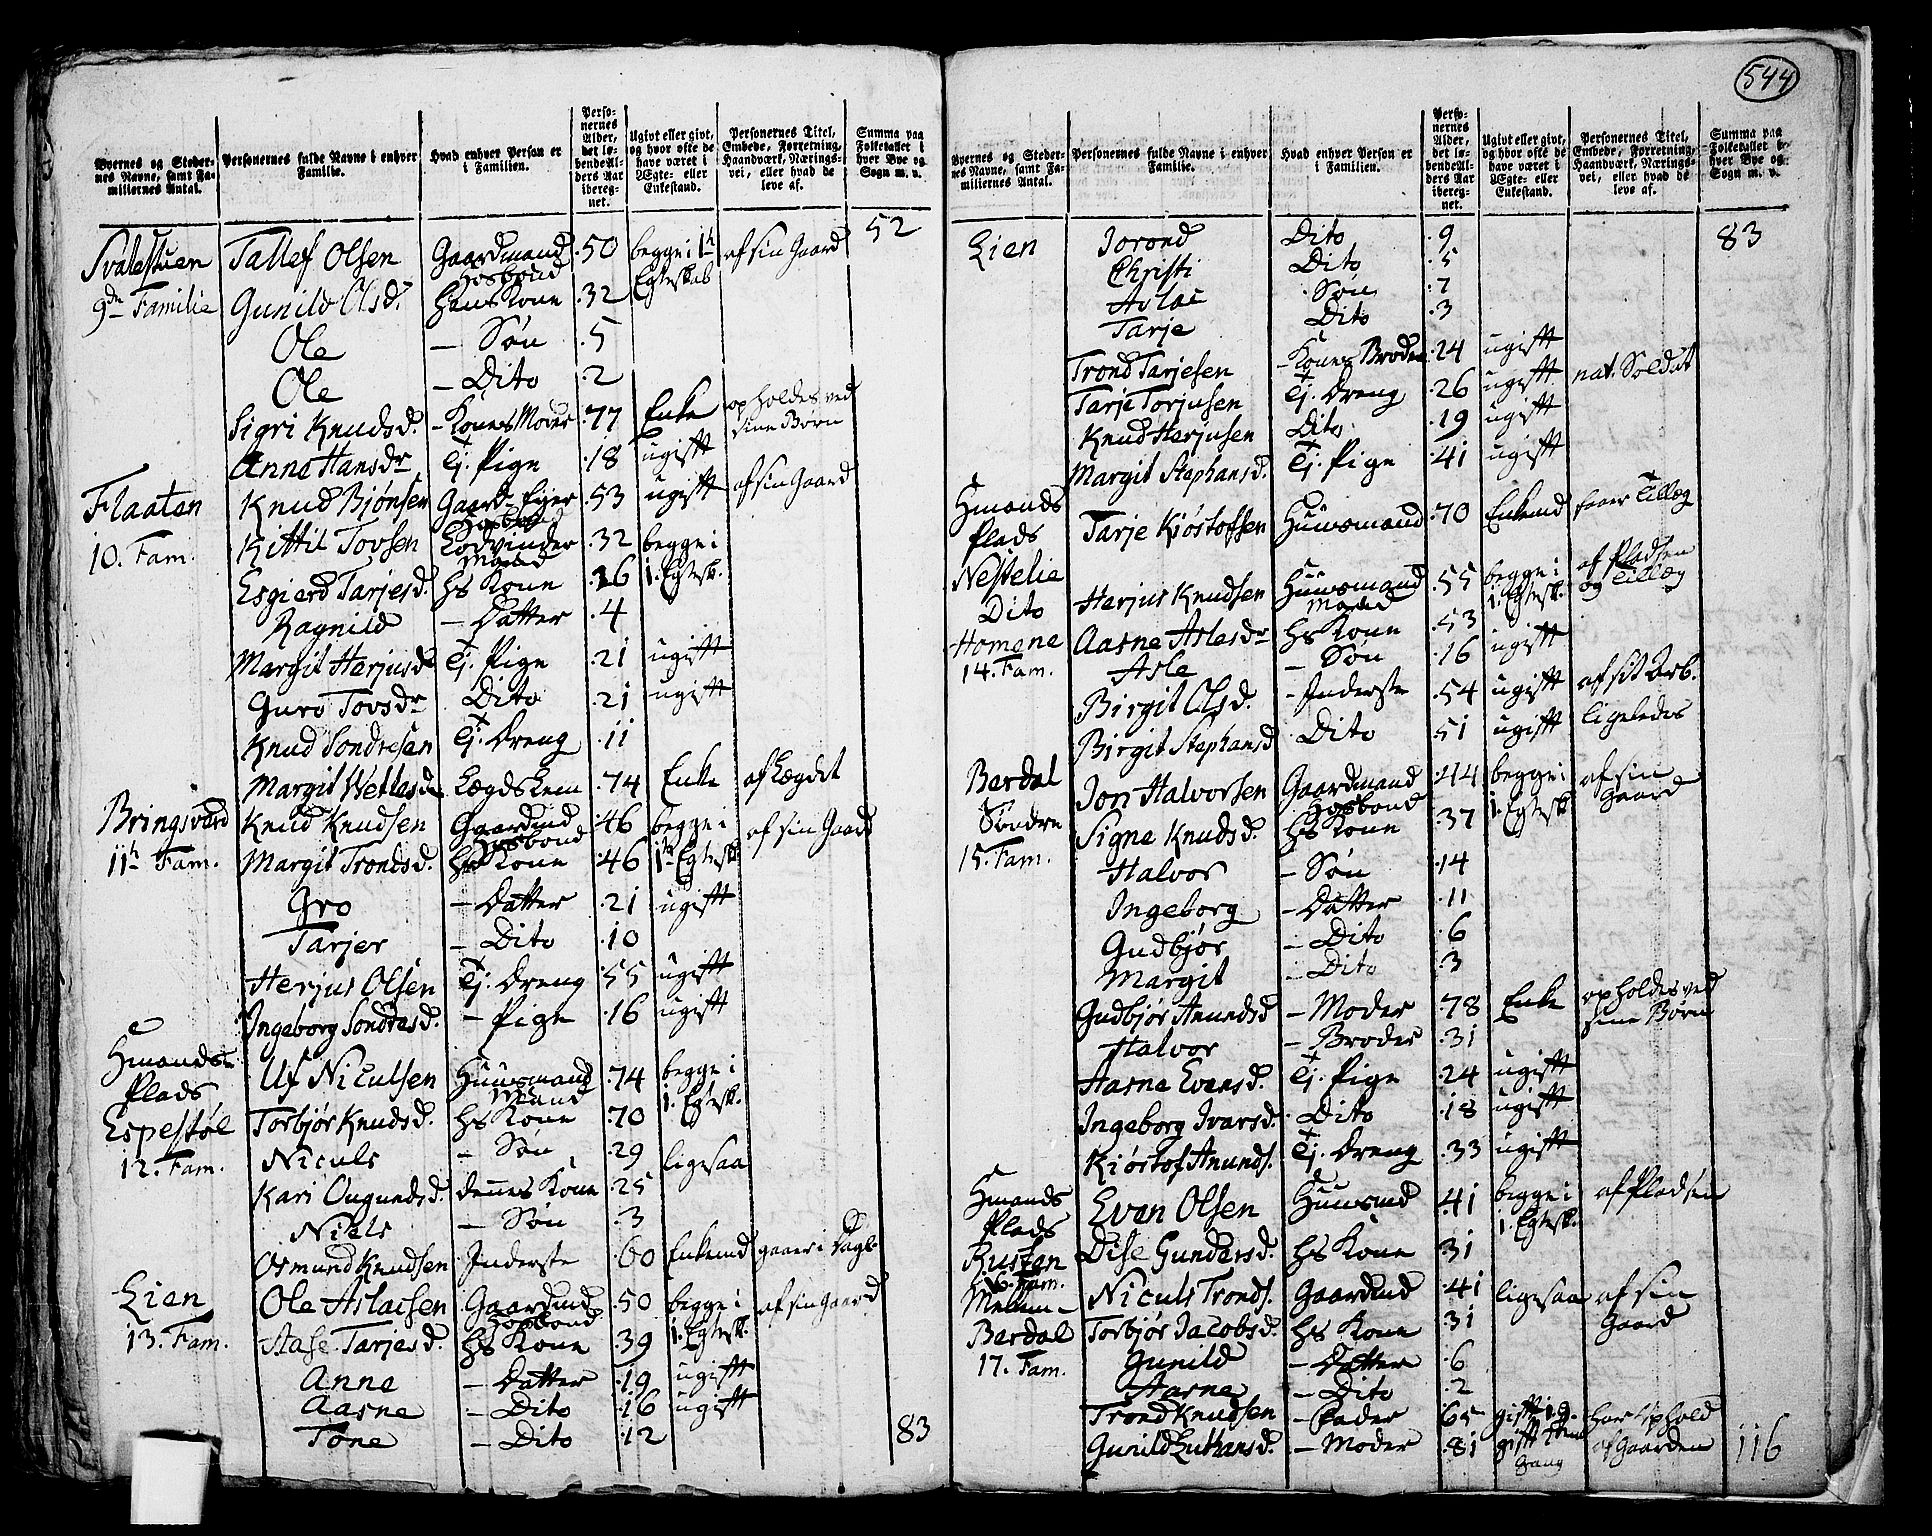 544
Byernes og Steder-
nes Navne, samt Fa-
miliernes Antal.
Personernes fulde Navne i enhver
Familie.
Hvad enhver Person er
i Familien.
Perso-
nernes
Alder,
det lø-
bende Al-
ders Aar
iberег-
net.
Ugivt eller givt,
og hvor ofte de
have været i
Ægte- eller
Enkestand.
Personernes Titel,
Embede, Forretning,
Haandværk, Nærings-
vei, eller hvad de
leve af.
Summa paa
Folketallet i
hver Bye og
Sogn m. v.
52
Svalestuen Tallef Olsen Gaardmand 50 begge i 1te af sin Gaard
Hosbond Egteskab
9de Familie Gunild Olsd. Hans Kone 32
Ole - Søn 5
Ole - Dito 2
Sigri Knudsd. - Kones Moder 77 Enke opholdes ved
sine Børn
Anne Hansdr Tj. Pige 18 ugift
Flaaten Knud Bjønsen Gaard-Ejer 53 ugift af sin Gaard
10. Fam. Kittil Tovsen 32 begge i
Mand
Esgierd Tarjesd. Hs Kone 26 1. Egtesk.
Ragnild - Datter 4
Margit Herjusdr Tj. Pige 21 ugift
Guro Tovsdr Dito 21 ugift
Knud Sondresen Tj. Dreng 11
Margit Wetlesdr Lægdslem 74 Enke af Lægdet
Bringsværd Knud Knudsen Gaardmd 46 begge i af sin Gaard
Hosbond
11te Fam. Margit Trondsd. Hs Kone 46 1te Egtesk.
Gro - Datter 21 ugift
Tarjer - Dito 10
Herjus Olsen Tj. Dreng 55 ugift
Ingeborg Sondresd. - Pige 16 ugift
Hmands-
Plads Ulf Niculsen Huusmand 74 begge i
Mand
Espestøl Torbjør Knudsd. Hs Kone 70 1. Egtesk.
12. Fam. Niculs - Søn 29 ligesaa
Kari Ougundsd. dennes Kone 25
Niels - Søn 3
Osmund Knudsen Inderste 60 Enkemd gaaer i Dagl.
Lien Ole Aslacsen Gaardmd 50 begge i af sin Gaard
Hosbond
13. Fam. Aase Tarjesd. Hs Kone 39 1. Egtesk.
Anne - Datter 19 ugift
Aasne - Dito 16 ugift
Tone - Dito 12
83
Byernes og Steder-
nes Navne, samt Fa-
miliernes Antal.
Personernes fulde Navne i enhver
Familie.
Hvad enhver Person er
i Familien.
Perso-
nernes
Alder,
det lø-
bende Al-
ders Aar
ibereg-
net.
Ugivt eller givt,
og hvor ofte de
have været i
Ægte- eller
Enkestand.
Personernes Titel,
Embede, Forretning,
Haandværk, Nærings-
vei, eller hvad de
leve af.
Summa paa
Folketallet i
hver Bye og
Sogn m. v.
83
Lien Jorond Dito 9
Christi Dito 5
Aslac Søn 7
Tarje Dito 3
Trond Tarjesen - Kones Broder 24 ugift
Tarje Torjusen Tj. Dreng 26 ugift nat. Soldat
Knud Herjusen Dito 19 ugift
Margit Stephansd. Tj. Pige 41 ugift
Hmands
Plads Tarje Kjøstofsen Huusmand 70 Enkemd faaer Tillæg
Nestelie Herjus Knudsen Huusmand 55 begge i af Pladsen
Dito Mand 1. Egtesk. og Tillæg
Homene Aasne Aslesdr Hs Kone 53
14. Fam. Asle - Søn 16 ugift
Birgit Olsd. - Inderste 54 ugift af sit Arb.
Birgit Stephansd Dito 51 ugift ligeledes
Berdal Jon Halvorsen Gaardmand 44 begge i af sin
Hosbond Gaard
Søndre Signe Knudsd. Hs Kone 37 1. Egtesk.
15. Fam. Halvor - Søn 14
Ingeborg - Datter 11
Gudbjør - Dito 6
Margit - Dito 3
Gudbjør Anundsd - Moder 78 Enke opholdes ved
sine Børn
Halvor - Broder 31
Aasne Evensd. Tj. Pige 24 ugift
Ingeborg Ivarsd. Dito 18 ugift
Kjøstof Anunds. Tj. Dreng 33 ugift
Hmands
Plads Even Olsen Huusmd 41 begge i af Pladsen
1. Egtesk.
Rusten Dise Gundersd. Hs Kone 31
16. Fam.
Mellem- Niculs Tronds. Gaardmd 41 ligesaa af sin
Berdal Torbjør Jacobsd. Hs Kone 31 Gaard
17. Fam. Gunild - Datter 6
Aasne - Dito 2
Trond Knudsen - Fader 65 gift har Ophold
Gunild - Moder 81 gift af Gaarden
Gang
116